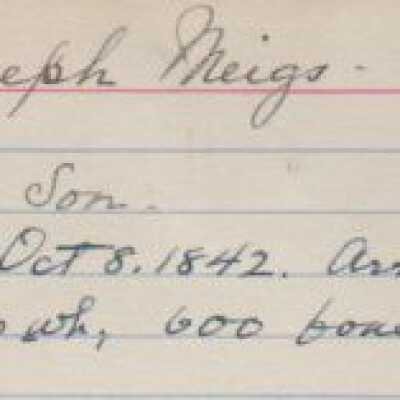 eph Meigs -
Son -
Oct 8. 1842. Arr
wh, 600 bone